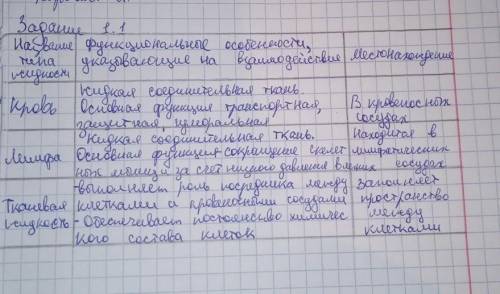 Задание 1.1
Название функциональные особенности,
типа указывающие на взаимодействие Местонахождение
жидкости
Жидкая соединительная ткань.
Кровь Основная функция транспортная, В кровеносных
защитная, гуморальная сосудах
Жидкая соединительная ткань. находится в
Лимфа Основная функция сокращение скелет лимфатических
ных мышц и за счёт низкого давления в сосудах
-выполняет роль посредника между заполняет
Тканевая клетками и кровеносными сосудами пространство
жидкость -Обеспечивает постоянство химичес между
кого состава клеток клетками